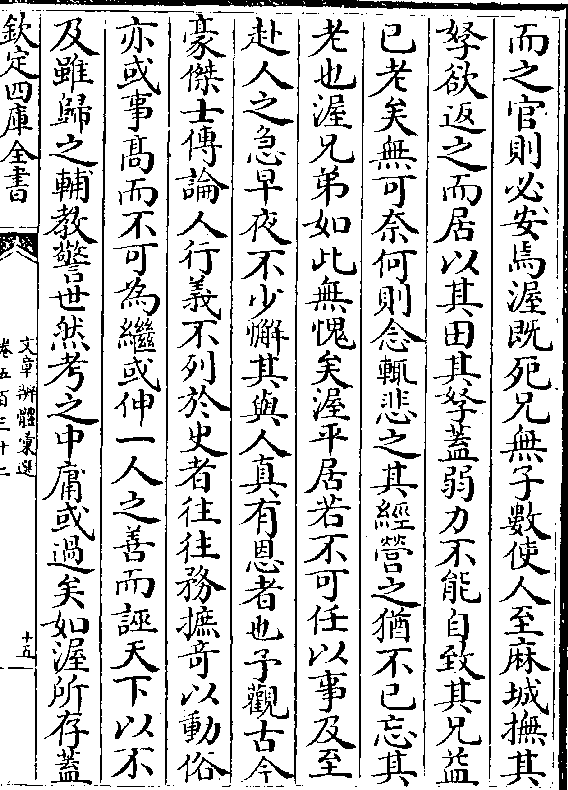 而之官則必安焉渥既死兄無子數使人至麻城撫其
孥欲返之而居以其田其孥蓋弱力不能自致其兄益
已老矣無可奈何則念輒悲之其經營之猶不已忘其
老也渥兄弟如此無愧矣渥平居若不可任以事及至
赴人之急早夜不少懈其與人真有恩者也予觀古今
豪傑士傳論人行義不列於史者往往務摭竒以動俗
亦或事髙而不可為繼或伸一人之善而誣天下以不
及雖歸之輔教警世然考之中庸或過矣如渥所存蓋
欽定四庫全書
文章辨體彚選
卷五百三十二
十五